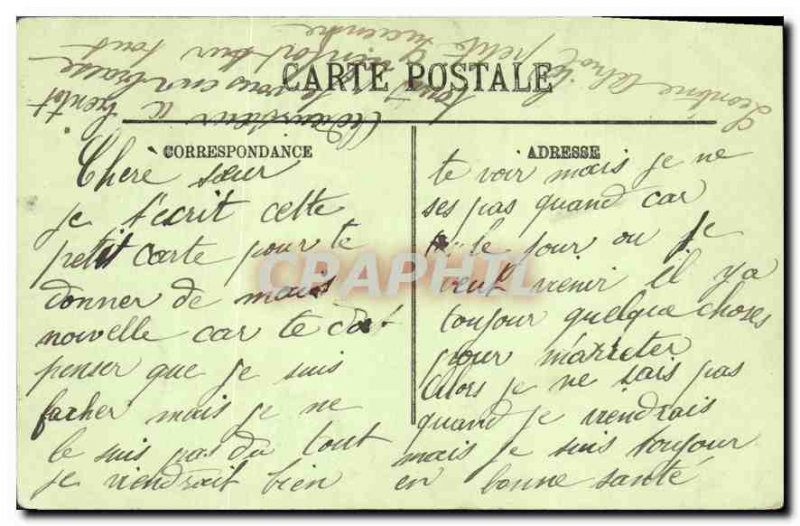 CARTE POSTALE
CORRESPONDANCE
Chere sœur
je t'ecrit cette
petit carte pour te
donner de mais
nouvelle car te doit
penser que je suis
facher mais je ne
le suis pas du tout
je viendrait bien
ADRESSE
te voir mais je ne
ses pas quand car
le jour ou je
veut venir il ya
toujour quelque choses
pour m'arreter
Alors je ne sais pas
quand je viendrais
mais je suis toujour
en bonne santé
a bientot
je vous embrasse
tous
petite
Leontine
CPAPHIL